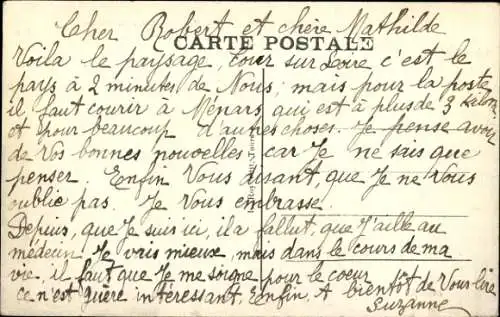 Cher Robert et chère Mathilde
CARTE POSTALE
Voila le paysage, Cour sur Loire c'est le
pays à 2 minutes de Nous, mais pour la poste
il faut courir à Ménars qui est à plus de 3 kilom
et pour beaucoup d'autres choses. Je pense avoir
de vos bonnes nouvelles car Je ne sais que
penser. Enfin Vous disant, que Je ne Vous
oublie pas. Je vous embrasse.
Depuis, que Je suis ici, il a fallut, que J'aille au
médecin. Je vais mieux, mais dans le cours de ma
vie, il faut que Je me soigne pour le coeur
ce n'est guère intéressant, Enfin, A bientôt de Vous lire
Suzanne